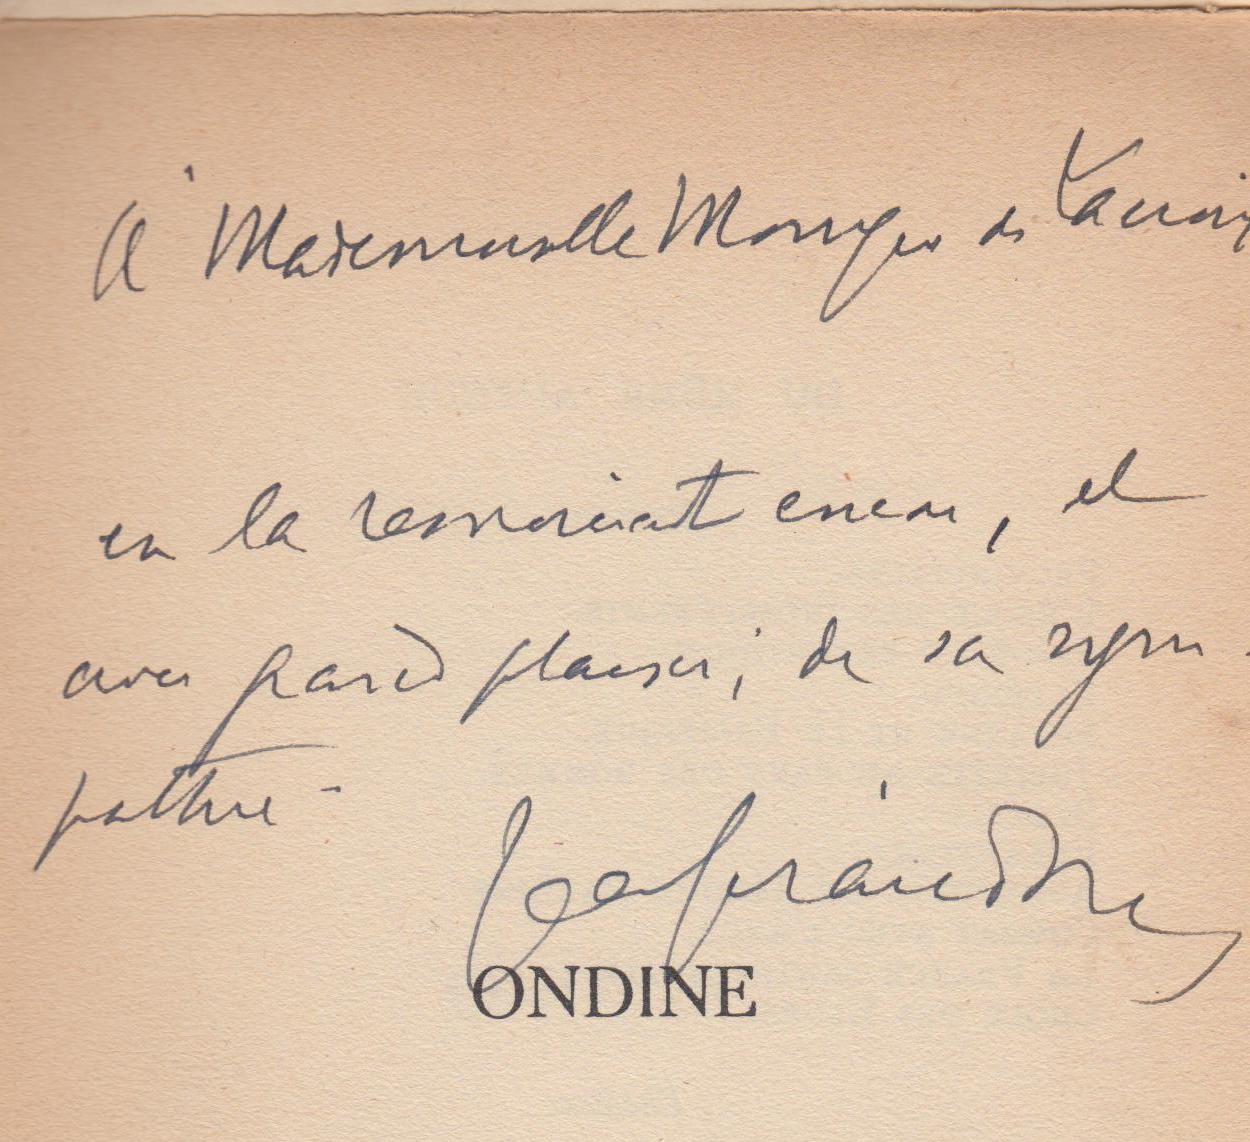 A Mademoiselle Monique de
en la remerciant encore, et
avec grand plaisir, de sa sym-
pathie -
Jean Giraudoux
ONDINE